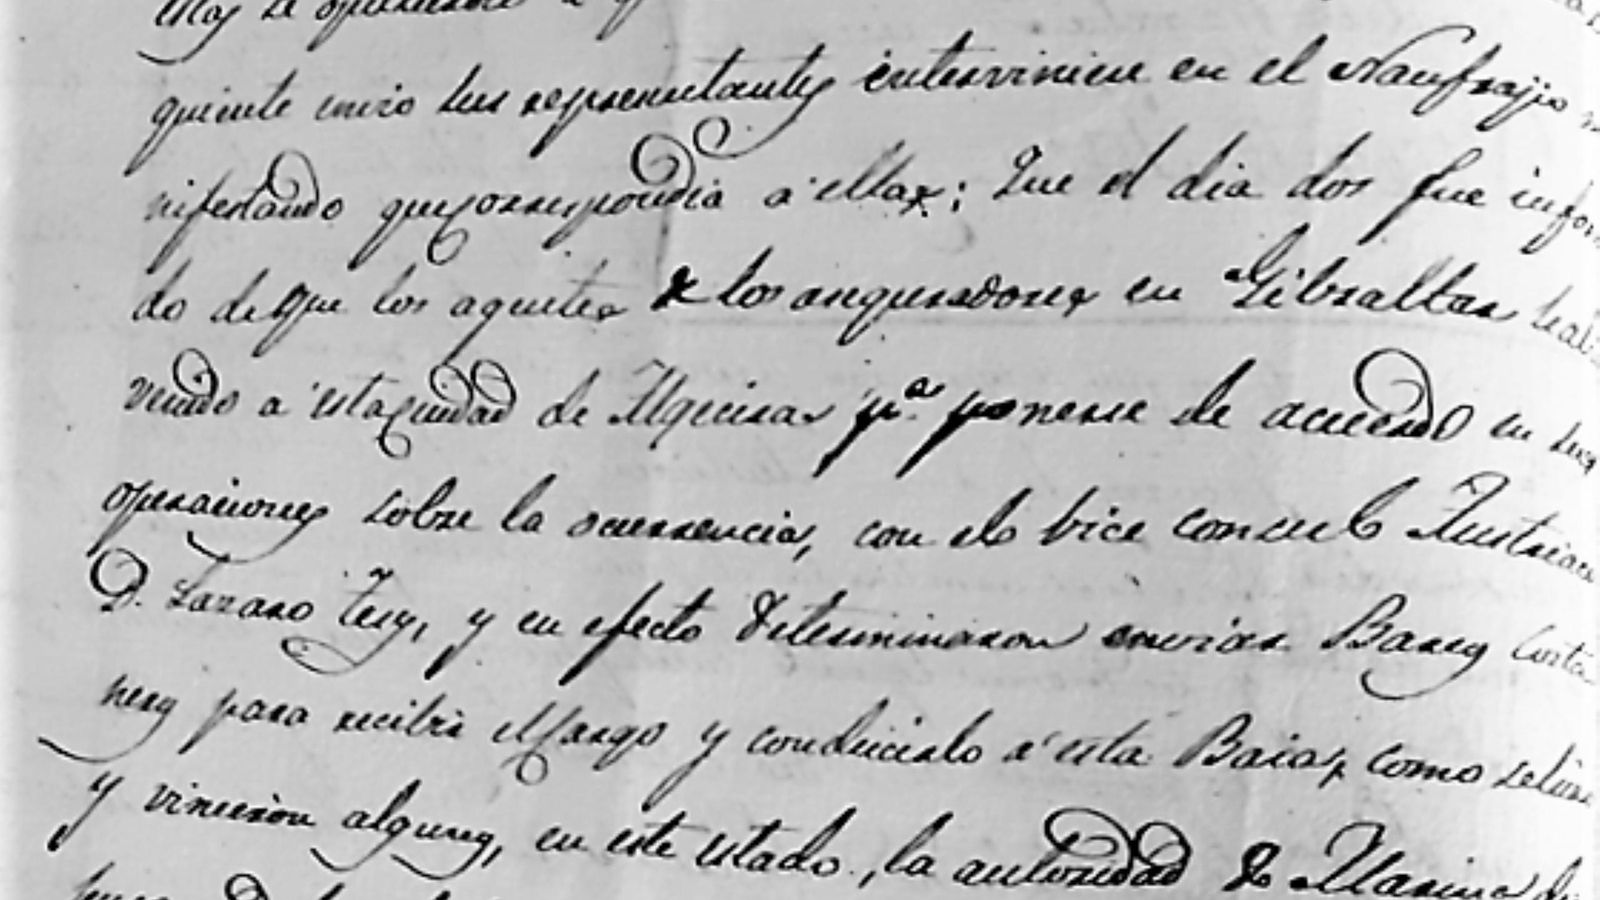 quiente quiso sus representantes interviniese en el Naufrajio
nifestando que correspondia a ellas; Que el dia dos fue infor
do de que los agentes de los aseguradores en Gibraltar
venido a esta Ciudad de Algeciras pª ponerse de acuerdo en sus
operaciones sobre la ocurrencia, con el bice consul Austriaco
D. Lazaro y en efecto determinaron enviar Barcos Costa
neros para recibir el Cargo y conducirlo a esta Baia, como se hizo
y vinieron algunos, en este estado, la autoridad de Marina